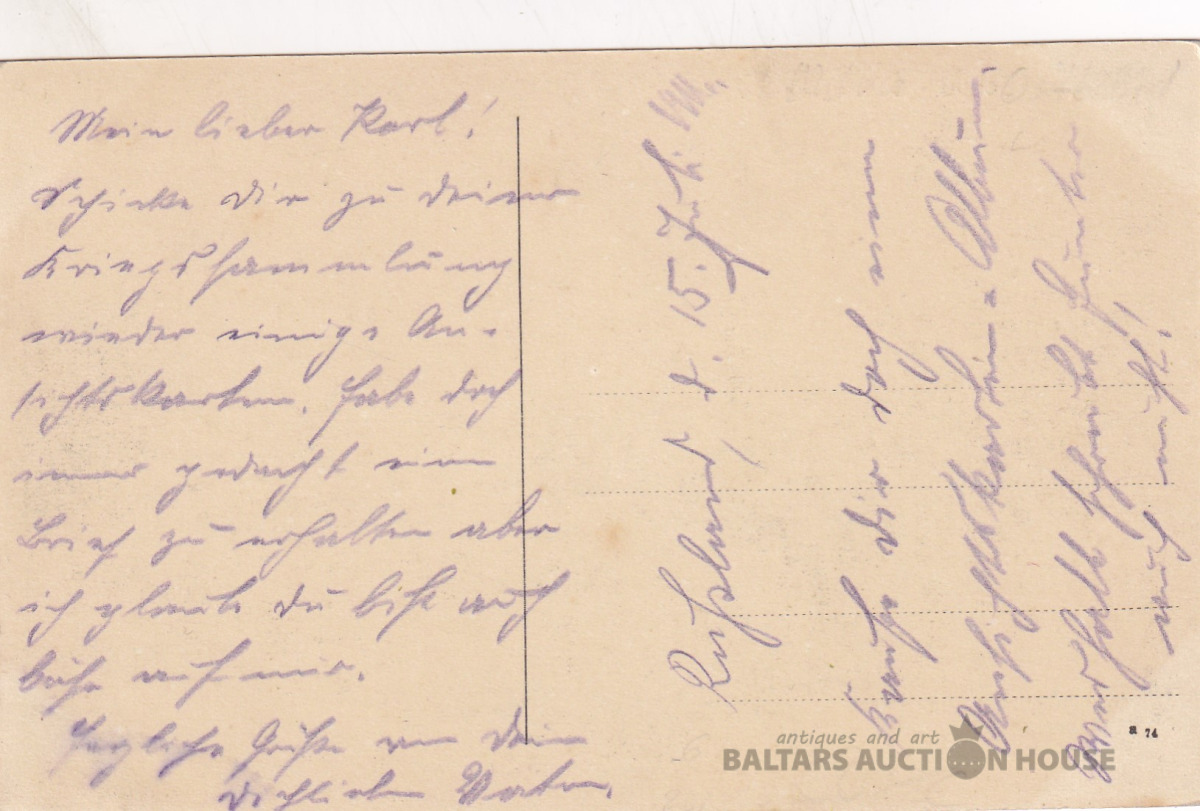 Mein lieber Karl!
Schicke Dir zu deiner
Kriegssammlung
wieder einige An-
sichtskarten. Habe doch
immer gedacht einen
Brief zu erhalten aber
ich glaube du bist auch
böse auf mir.
Herzliche Grüße von Dein
Dichliebend Vater.
Rußland, d. 15. Juli
Kaufe dir doch einen
Ansichtskarten-Album
auch nicht!
a 74
antiques and art
BALTARS AUCTION HOUSE